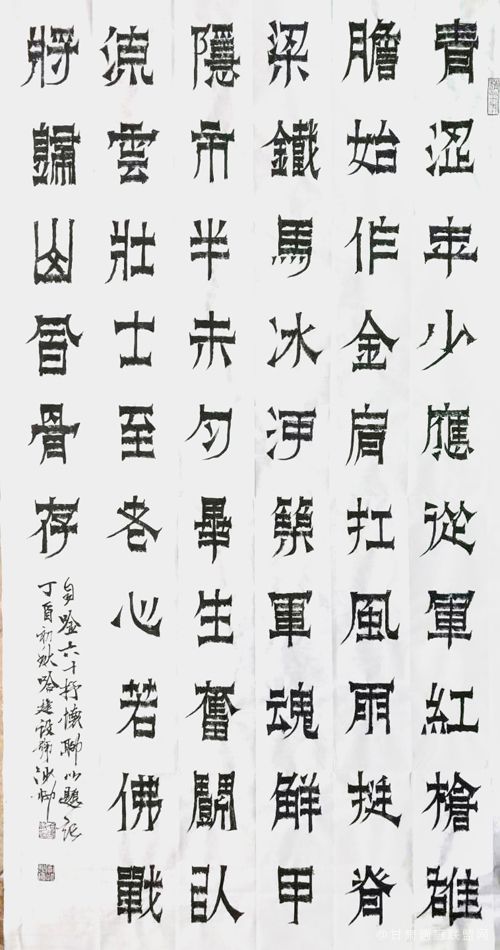 青澀年少應從軍紅槍雄
膽始作金肩扛風雨挺脊
梁鐵馬冰河築軍魂解甲
隱市半未勻畢生奮鬭臥
流雲壯士至老心若佛戰
將歸山骨存
自唫六十抒懷聊以題記
丁酉初秋哈建設